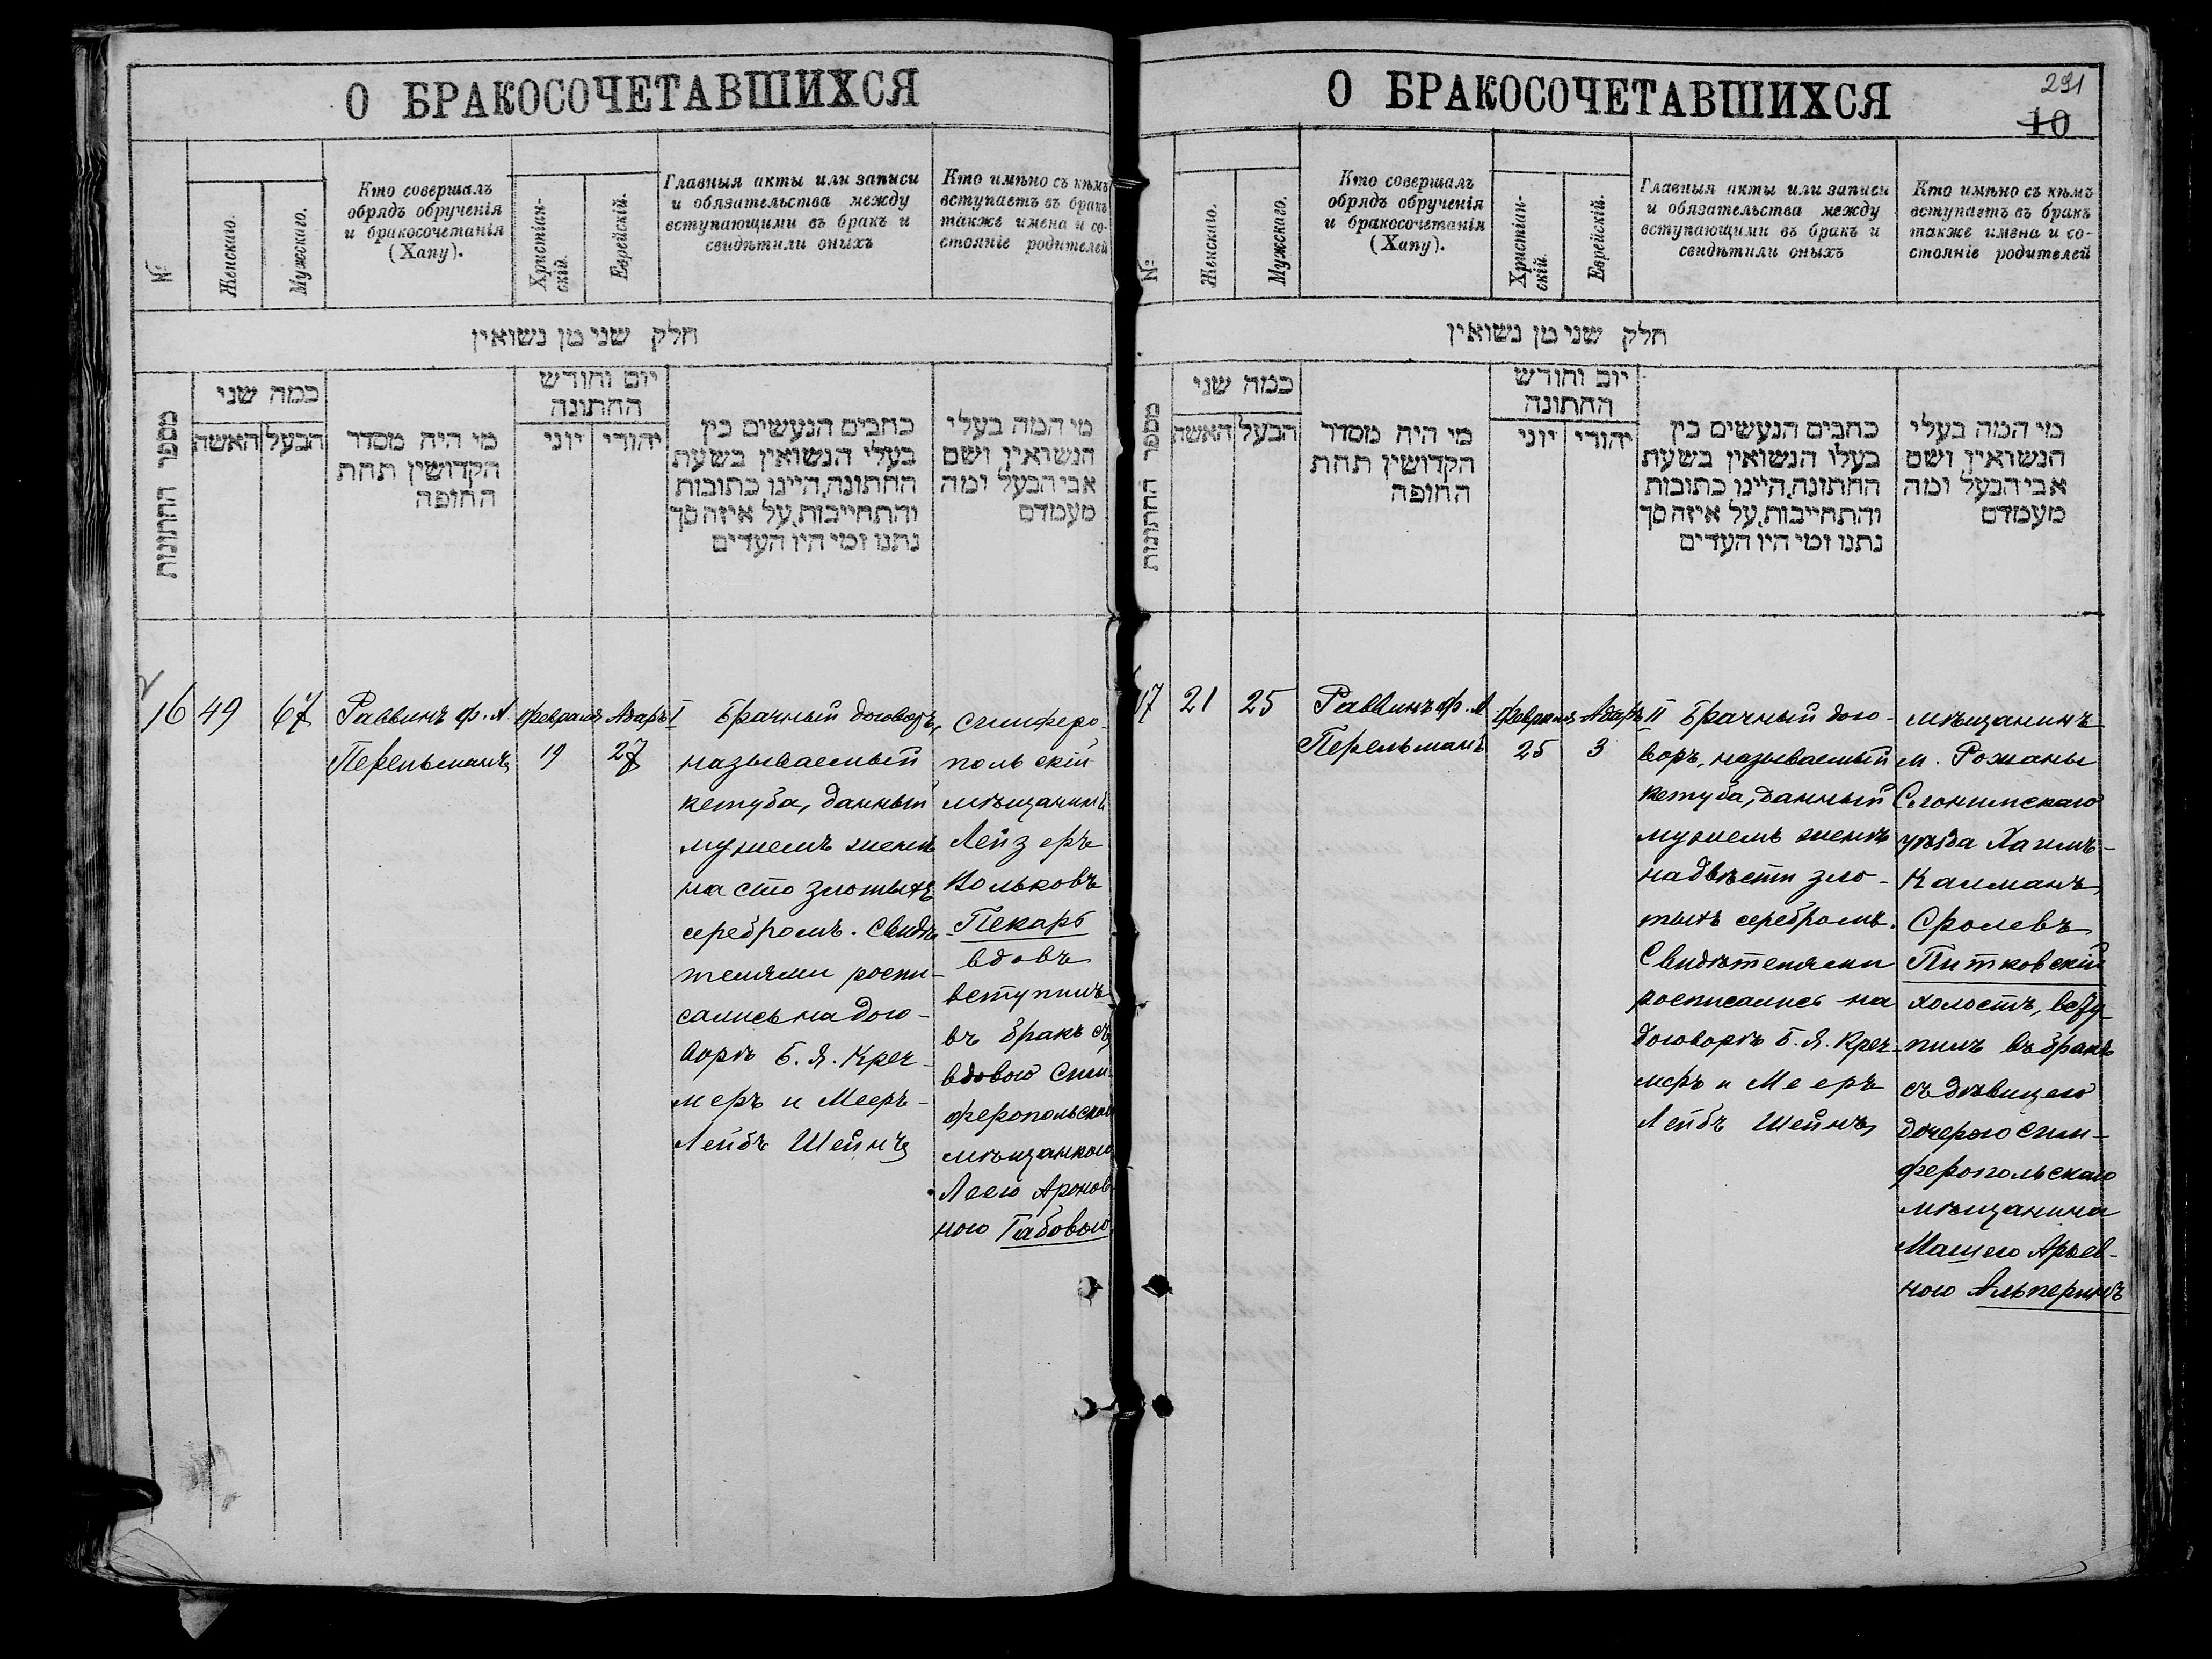 О БРАКОСОЧЕТАВШИХСЯ
№
Женскаго.
Мужскаго.
Кто совершалъ
обрядъ обрученія
и бракосочетанія
(Хапу).
Христіан-
скій.
Еврейскій.
Главныя акты или записи
и обязательства между
вступающими въ бракъ и
свидѣтили оныхъ
Кто имѣно съ кѣмъ
вступаетъ въ бракъ
также имена и со-
стояніе родителей
חלק שני מן נשואין
מספר החתונות
כמה שני
האשה
הבעל
מי היה מסדר
הקדושין תחת
החופה
יום וחודש
החתונה
יוני
יהודי
כתבים הנעשים בין
בעלי הנשואין בשעת
החתונה, היינו כתובות
והתחייבות, על איזה סך
נתנו ומי היו העדים
מי המה בעלי
הנשואין ושם
אבי הבעל ומה
מעמדם
16
49
67
Раввинъ Ф. А.
Перельманъ
Февраля
19
Адаръ I
27
Брачный договоръ,
называемый
кетуба, данный
мужемъ женѣ
на сто злотыхъ
серебромъ. Свидѣ
телями роспи-
сались на дого-
ворѣ Б. Я. Креч-
меръ и Мееръ-
Лейбъ Шейнъ
Симферо-
польскій
мѣщанинъ
Лейзеръ
Вольковъ
Пекарь
вдовъ
вступилъ
въ бракъ съ
вдовою Сим-
феропольскою
мѣщанкою
Леею Аронов-
ною Габовою
О БРАКОСОЧЕТАВШИХСЯ
291
10
№
Женскаго.
Мужскаго.
Кто совершалъ
обрядъ обрученія
и бракосочетанія
(Хапу).
Христіан-
скій.
Еврейскій.
Главныя акты или записи
и обязательства между
вступающими въ бракъ и
свидѣтили оныхъ
Кто имѣно съ кѣмъ
вступаетъ въ бракъ
также имена и со-
стояніе родителей
חלק שני מן נשואין
מספר החתונות
כמה שני
האשה
הבעל
מי היה מסדר
הקדושין תחת
החופה
יום וחודש
החתונה
יוני
יהודי
כתבים הנעשים בין
בעלי הנשואין בשעת
החתונה, היינו כתובות
והתחייבות, על איזה סך
נתנו ומי היו העדים
מי המה בעלי
הנשואין ושם
אבי הבעל ומה
מעמדם
17
21
25
Раввинъ Ф. А
Перельманъ
Февраля
25
Адаръ II
3
Брачный дого-
воръ, называемый
кетуба, данный
мужемъ женѣ
на двѣсти зло-
тыхъ серебромъ.
Свидѣтелями
росписались на
договорѣ Б. Я. Креч-
меръ и Мееръ
Лейбъ Шейнъ
мѣщанинъ
м. Рожаны
Слонимскаго
уѣзда Хаимъ-
Калманъ
Сролевъ
Питковскій
холостъ, всту-
пилъ въ бракъ
съ дѣвицею
дочерью Сим-
феропольскаго
мѣщанина
Машею Арьев-
ною Альперинъ